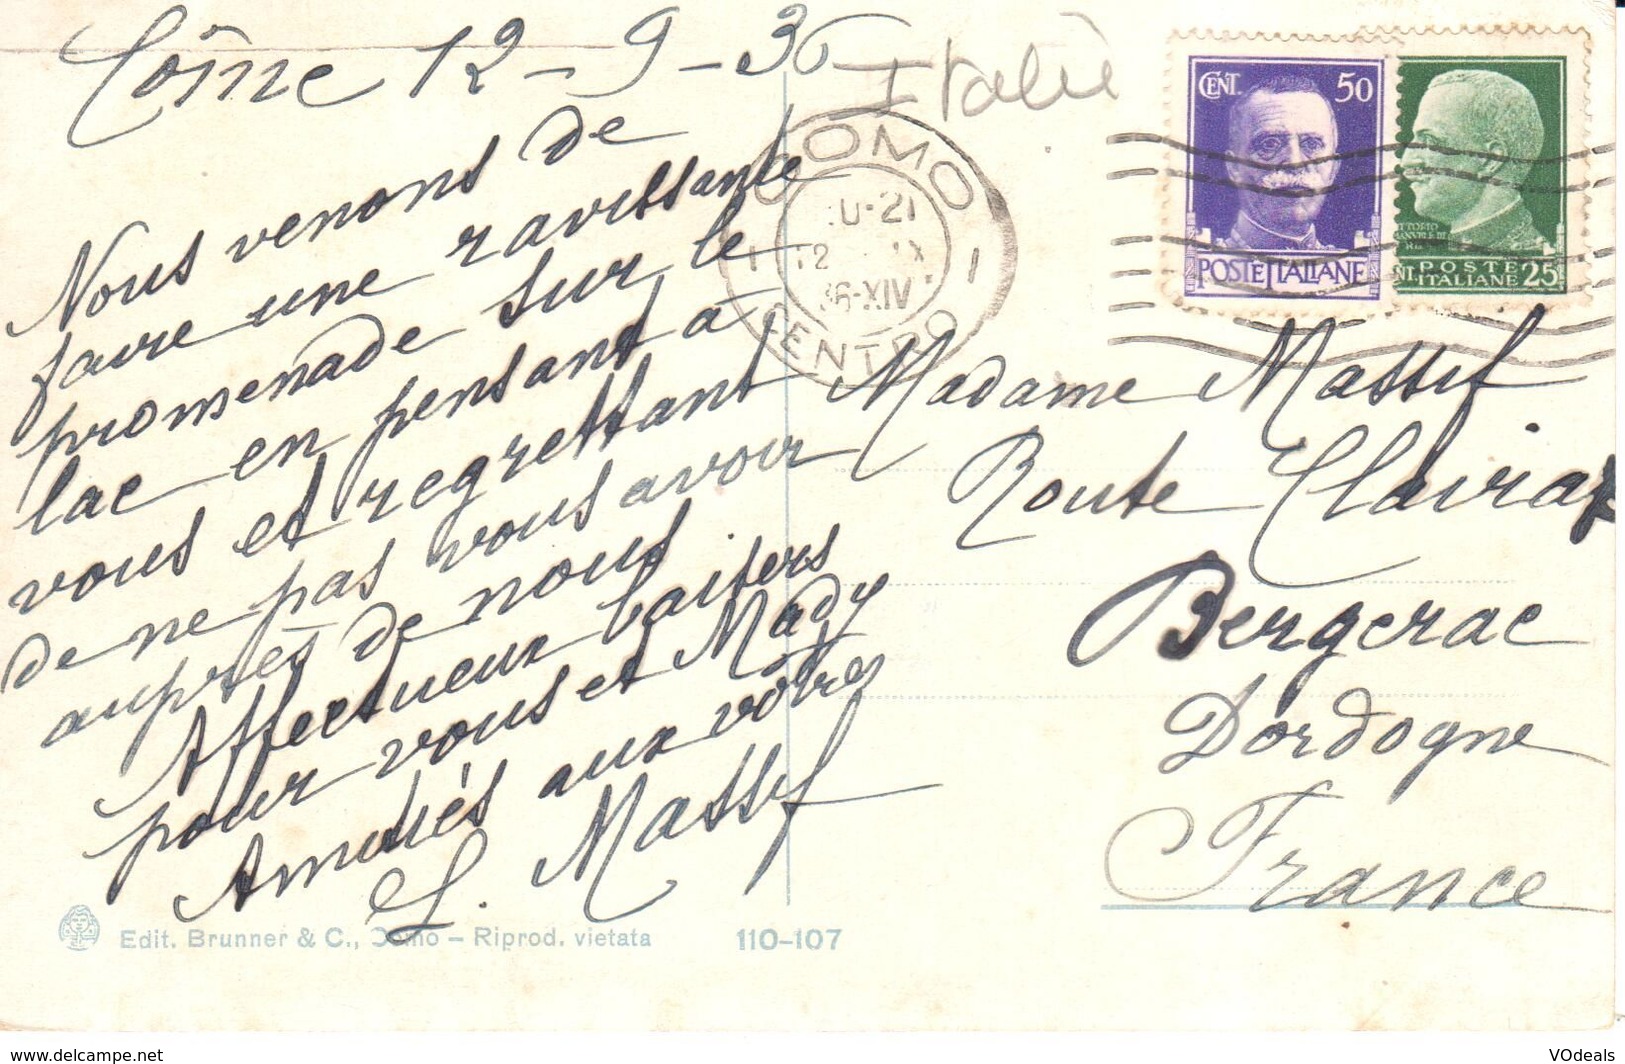 Côme 12-9-36
Italie
Nous venons de
faire une ravissante
promenade sur le
lac en pensant à
vous et regrettant
de ne pas vous avoir
auprès de nous
Affectueux baisers
pour vous et Mady
Amitiés aux vôtres
L. Massif
COMO
20-21
12 IX
36-XIV
CENTRO
CENT. 50
POSTE ITALIANE
VITTORIO EMANVELE III RE
CENT. POSTE ITALIANE 25
Madame Massif
Route Clairat
Bergerac
Dordogne
France
Edit. Brunner & C., Como – Riprod. vietata
110-107
www.delcampe.net
VOdeals